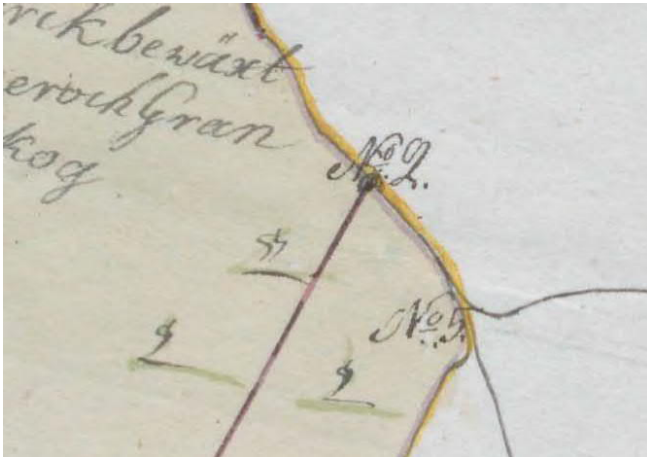 rckbewäxt
eroch Gran
kog
No 2.
No 5.